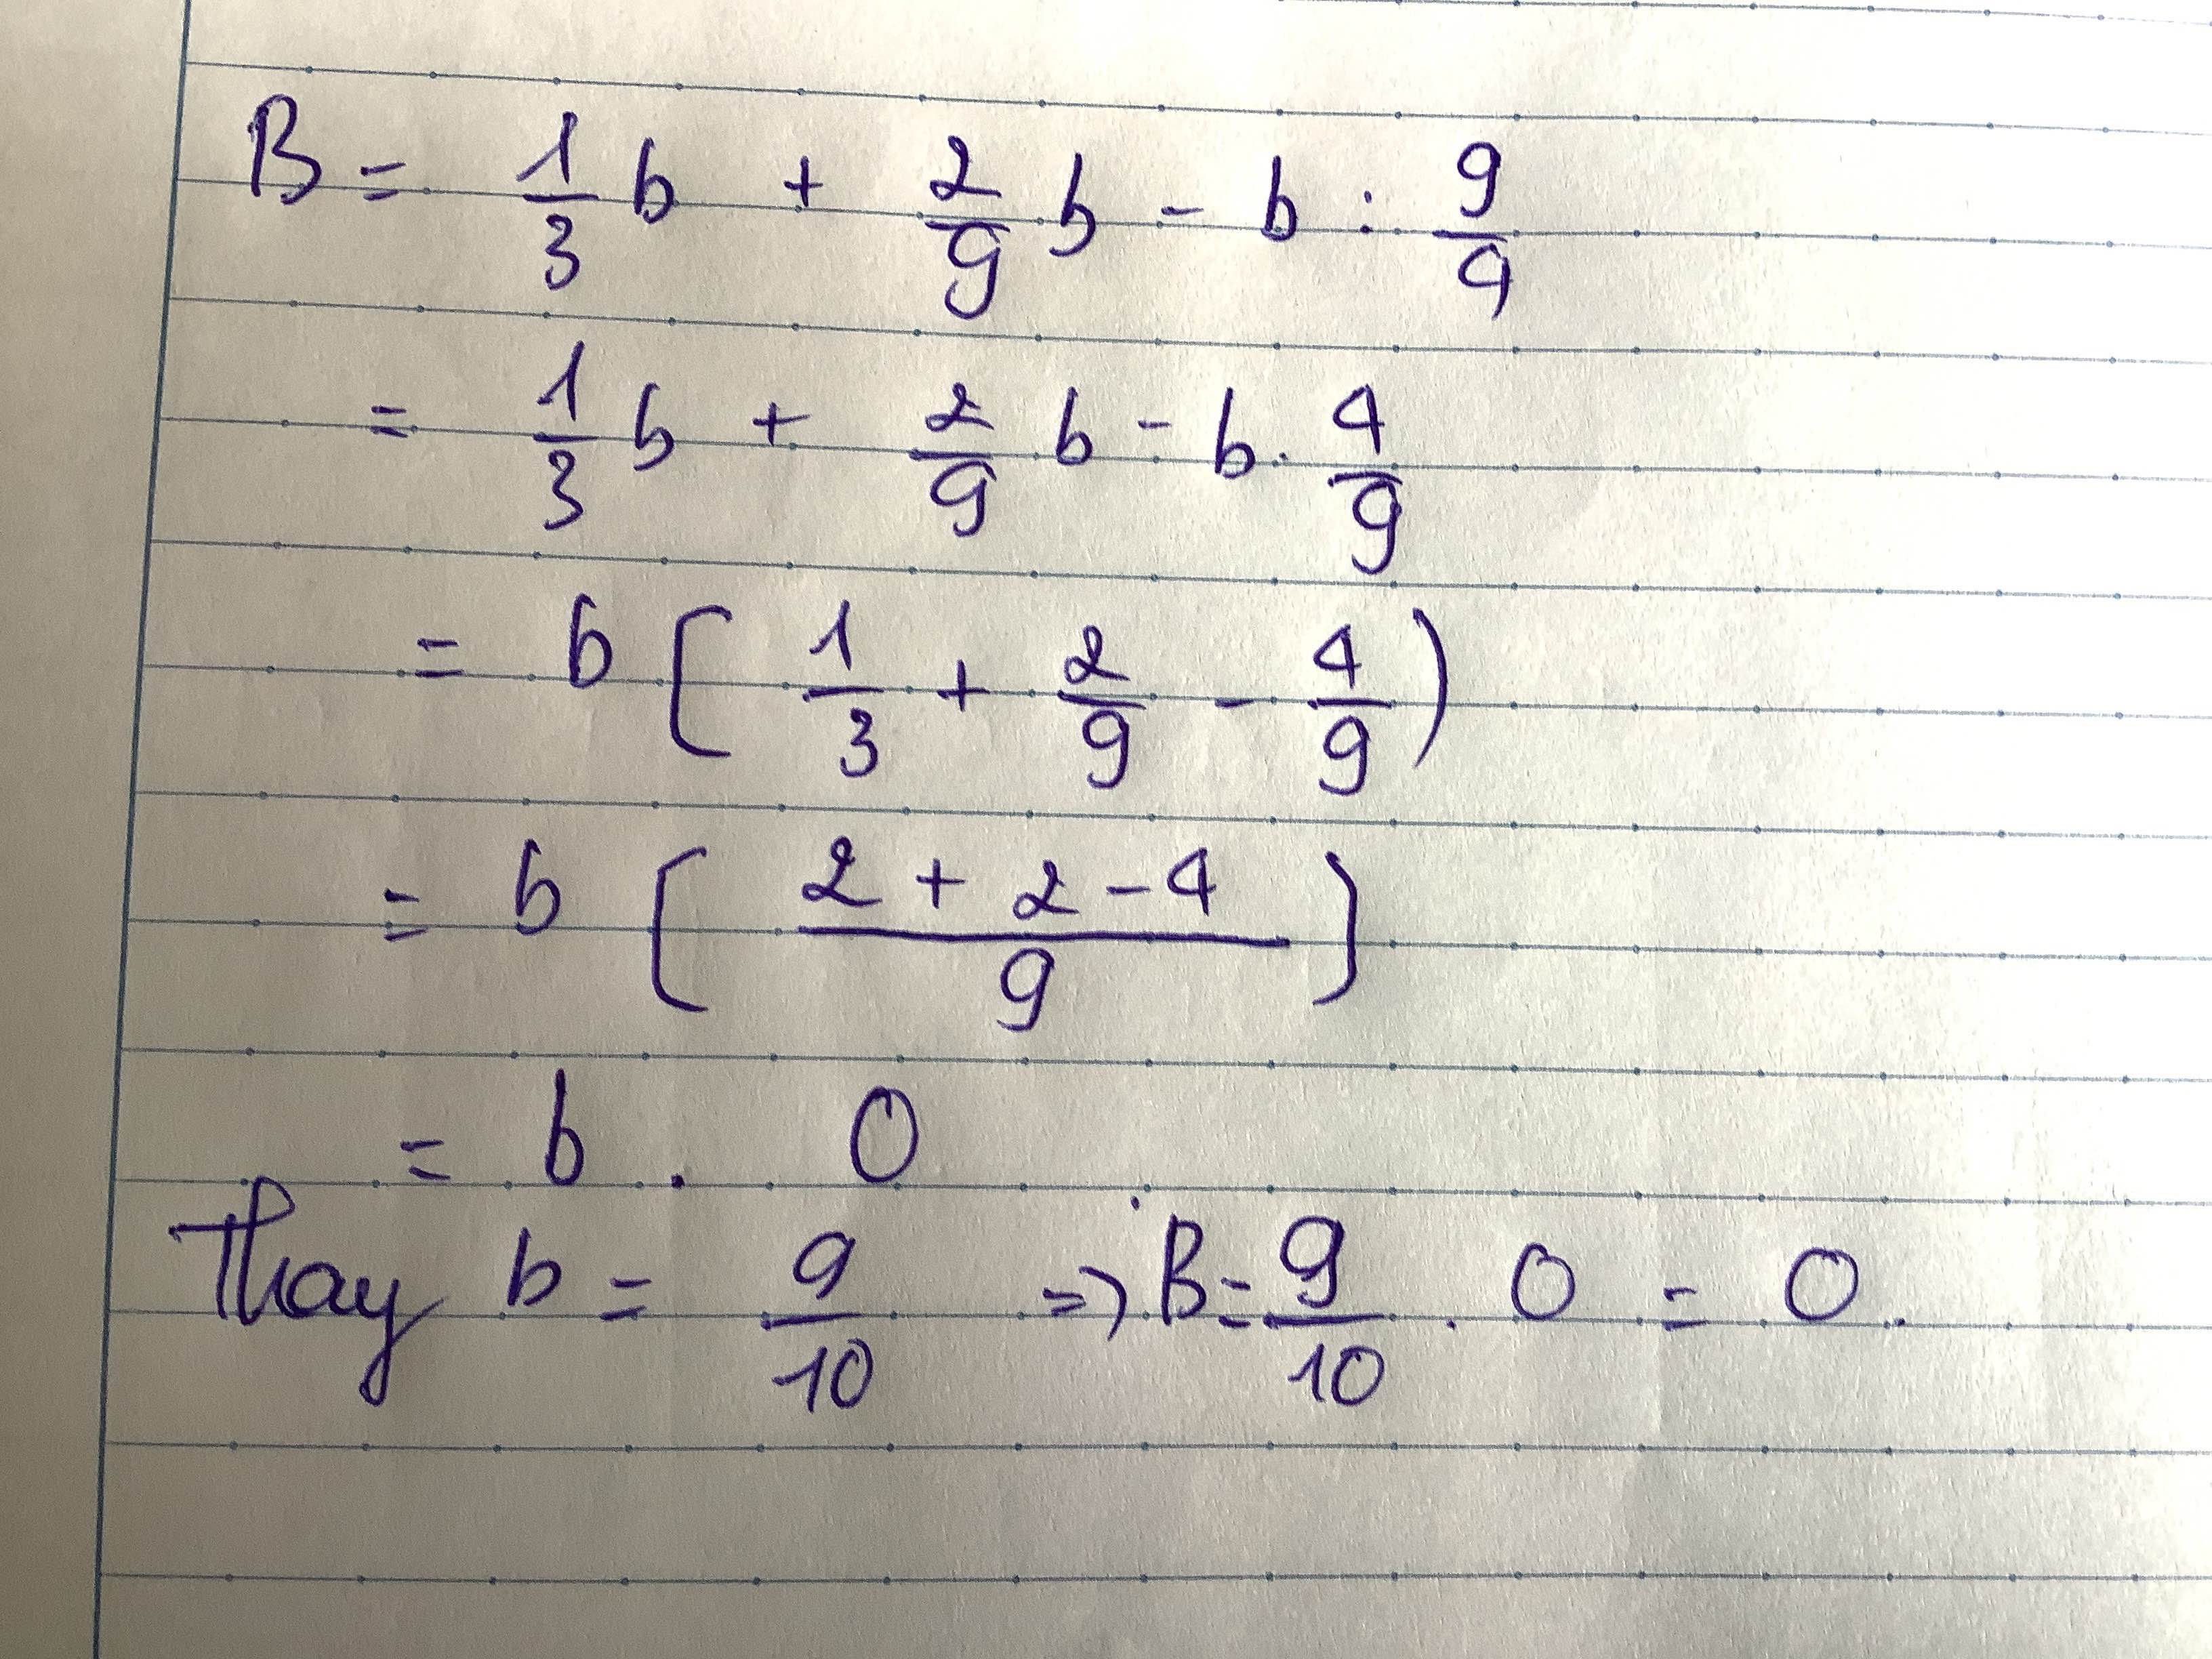 B = 1/3 b + 2/9 b - b : 9/4
= 1/3 b + 2/9 b - b . 4/9
= b ( 1/3 + 2/9 - 4/9 )
= b ( (2 + 2 - 4)/9 )
= b . 0
Thay b = 9/10 => B = 9/10 . 0 = 0.